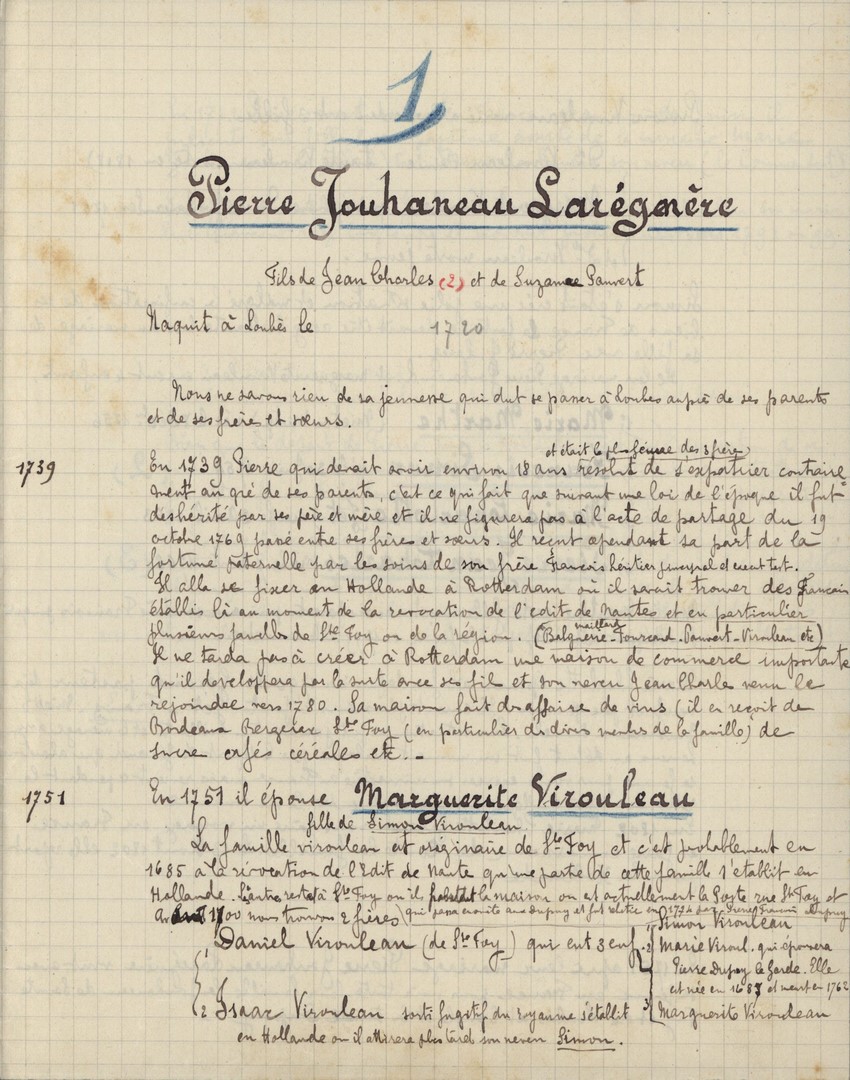 1
Pierre Jouhaneau Larégnère
Fils de Jean Charles (2) et de Suzanne Pauvert
Naquit à Loubès le 1720
Nous ne savons rien de sa jeunesse qui dut se passer à Loubes auprès de ses parents
et de ses frères et sœurs.
et était le plus jeune des 3 frères
1739 En 1739 Pierre qui devait avoir environ 18 ans résolut de s'expatrier contraire
ment au gré de ses parents, c'est ce qui fait que suivant une loi de l'époque il fut
déshérité par ses père et mère et il ne figurera pas à l'acte de partage du 19
octobre 1769 passé entre ses frères et sœurs. Il reçut cependant sa part de la
fortune paternelle par les soins de son frère François héritier general et execut test.
Il alla se fixer en Hollande à Rotterdam où il savait trouver des Français
établis là au moment de la revocation de l'edit de Nantes et en particulier
plusieurs familles de Ste Foy ou de la région. (Balguerie - Fourcand - Pauvert - Virouleau etc)
Il ne tarda pas à créer à Rotterdam une maison de commerce importante
qu'il developpera par la suite avec ses fils et son neveu Jean Charles venu le
rejoindre vers 1780. Sa maison fait des affaires de vins (il en reçoit de
Bordeaux Bergerac Ste Foy (en particulier des divers membres de la famille) de
sucre cafés céréales etc. -
1751 En 1751 il épouse Marguerite Virouleau
fille de Simon Virouleau
La famille virouleau est originaire de Ste Foy et c'est probablement en
1685 à la révocation de l'Edit de Nante qu'une partie de cette famille s'établit en
Hollande. L'autre resta à Ste Foy ou il habitait la maison ou est actuellement la Poste rue Ste Foy et
qui passa ensuite aux Dupuy et fut
1700 nous trouvons 2 frères
Daniel Virouleau (de Ste Foy) qui eut 3 enf.
1 Simon Virouleau
2 Marie Viroul. qui épousera
Pierre Dupuy le Garde. Elle
est née en 1687 et meurt en 1762
3 Marguerite Virouleau
2 Isaac Virouleau sorti fugitif du royaume s'établit
en Hollande ou il attirera plus tard son neveu Simon.